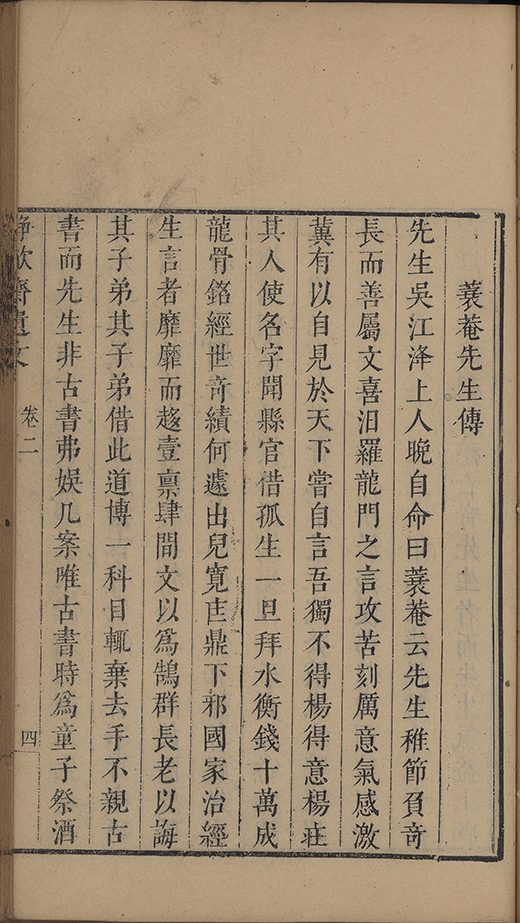 蓑菴先生傳
先生吳江浲上人晚自命曰蓑菴云先生稚節負奇
長而善屬文喜汨羅龍門之言攻苦刻厲意氣感激
冀有以自見於天下嘗自言吾獨不得楊得意楊莊
其人使名字聞縣官借孤生一旦拜水衡錢十萬成
龍骨銘經世奇績何遽出兒寬匡鼎下邪國家治經
生言者靡靡而趍壹禀肆間文以爲鵠群長老以誨
其子弟其子弟借此道博一科目輒棄去手不親古
書而先生非古書弗娛几案唯古書時爲童子祭酒
齋遺文 卷二 四